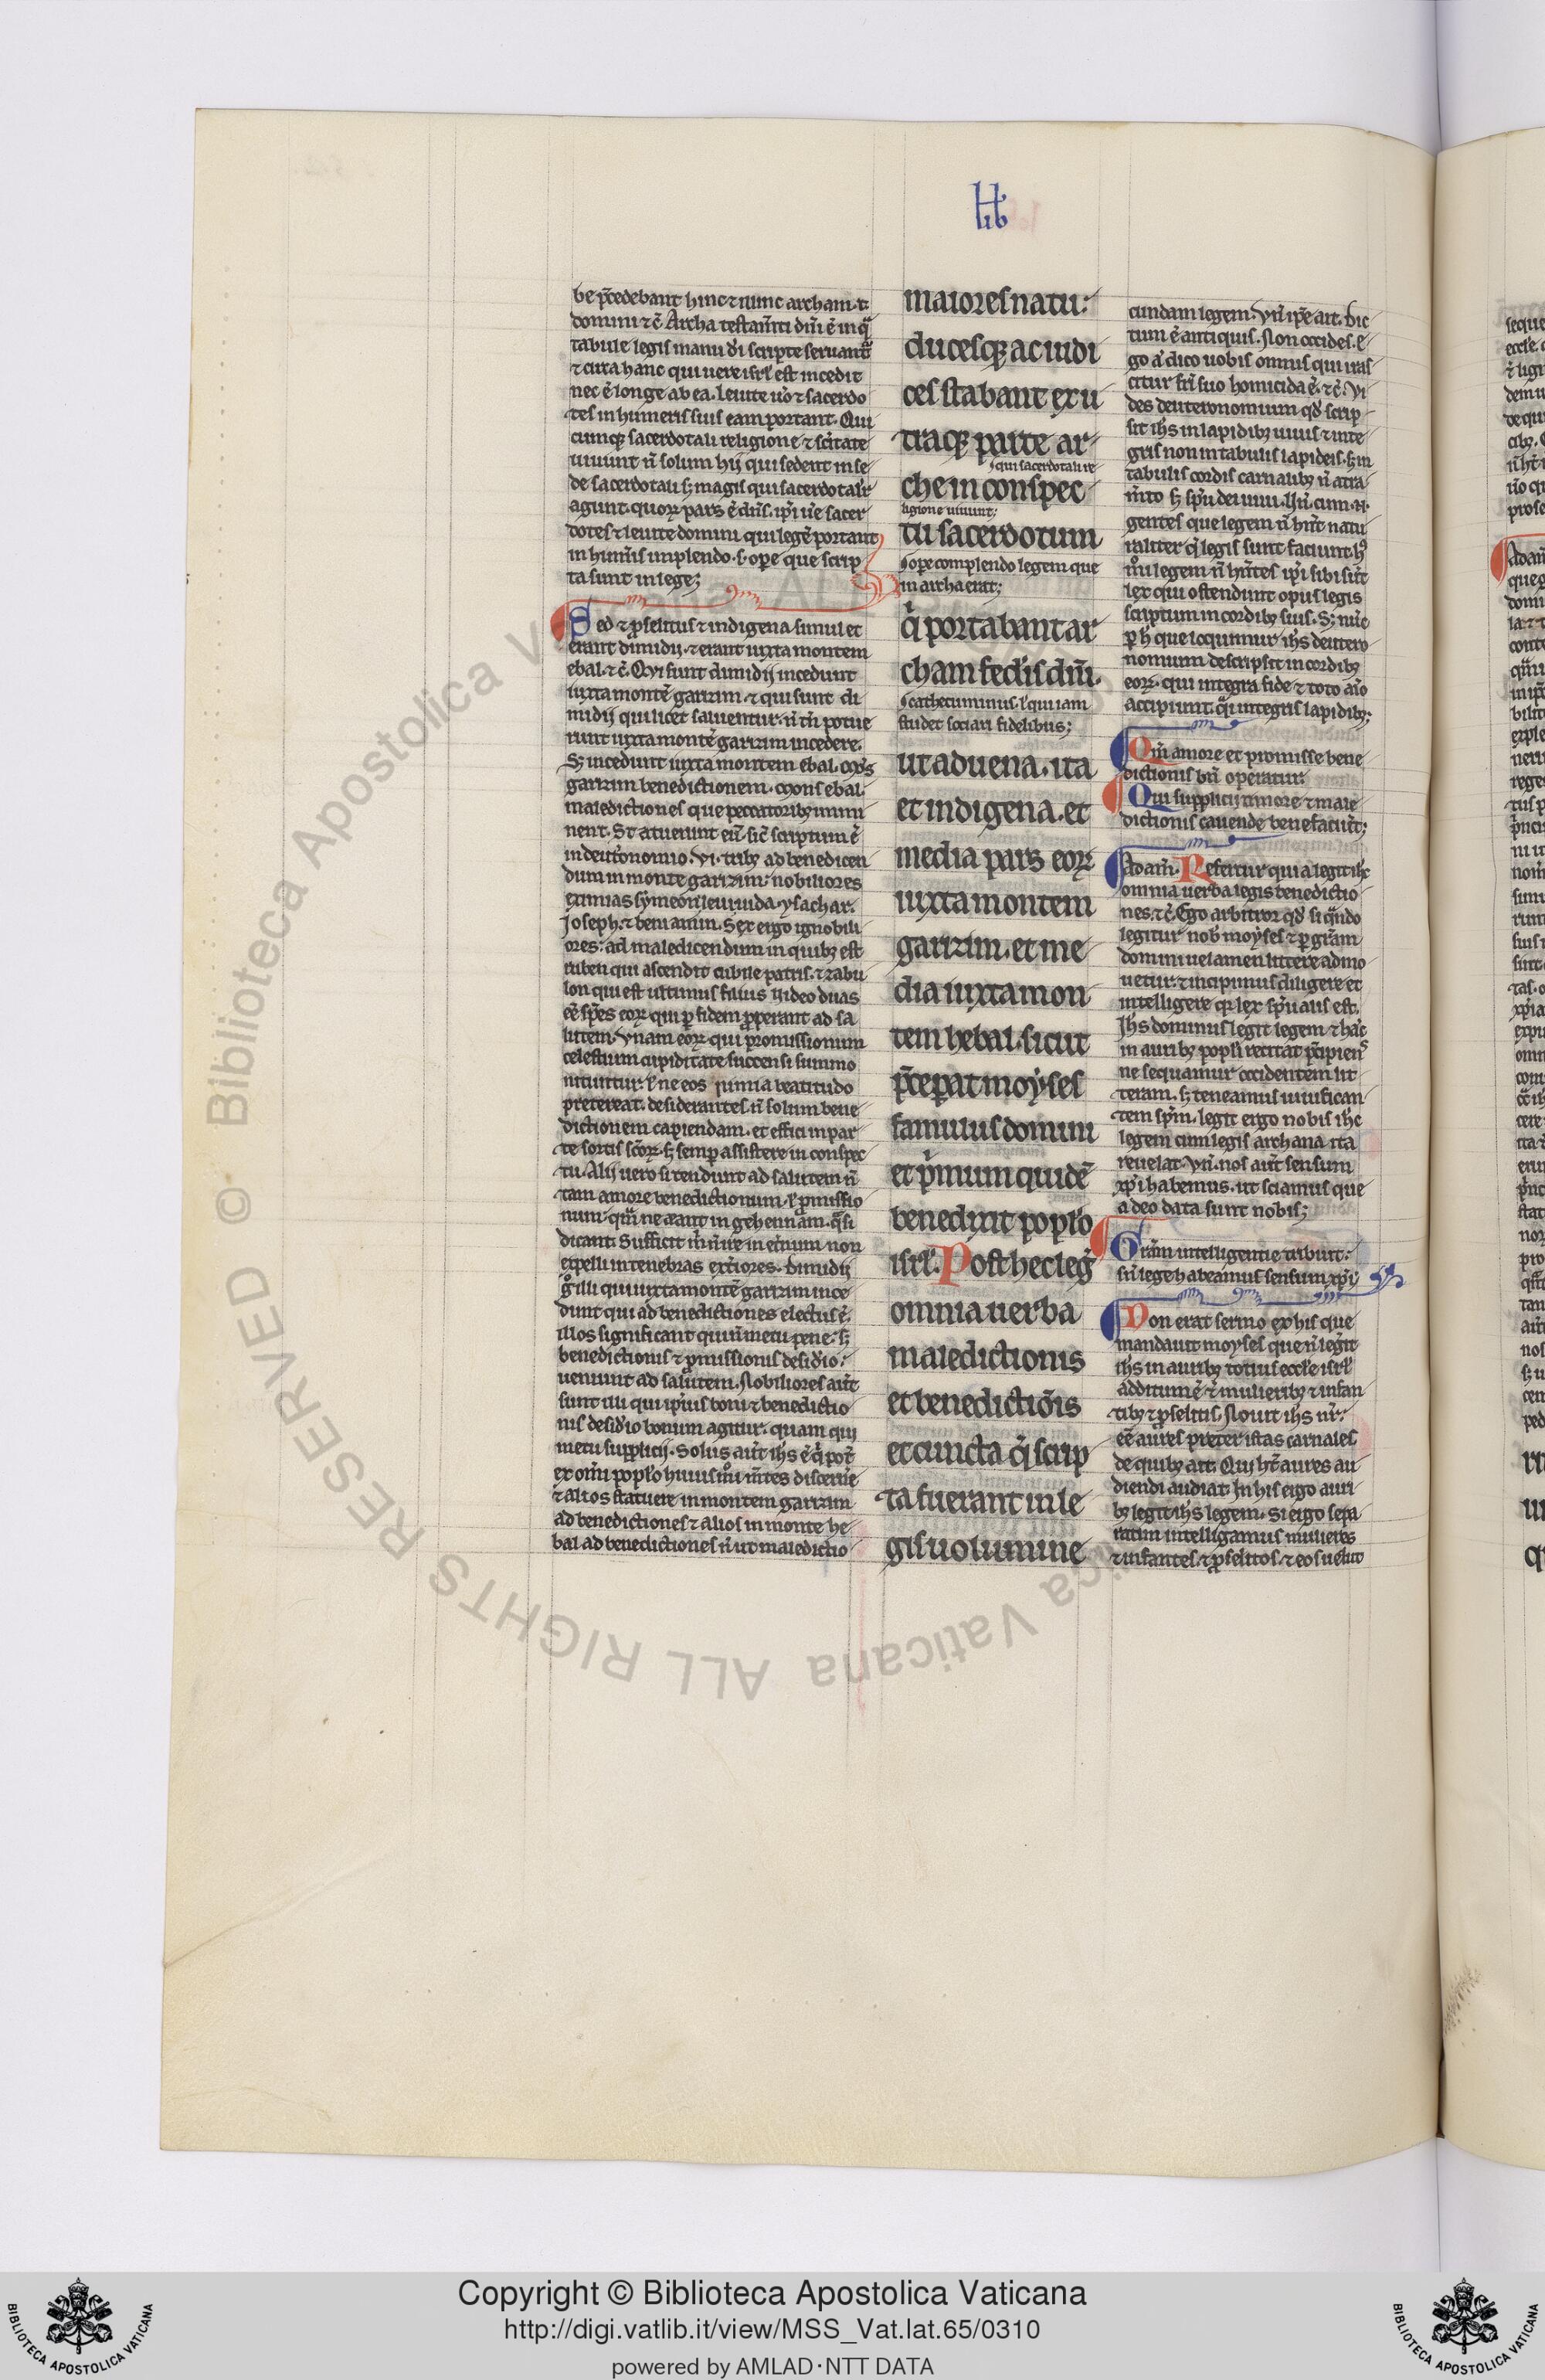 Lib
be p̄cedebant hinc ⁊ nunc archam. t.
domini ⁊c̄ Archa testam̄ti dn̄i ē in q̄
tabule legis manu d̓i scripte seruant̄
⁊ circa hanc qui uere isrl̓ est incedit
nec ē longe ab ea. leuite uo̓ ⁊ sacerdo
tes in humeris suis eam portant. Qui
cumqꝫ sacerdotali religione ⁊ sc̄itate
uiuunt n̄ solum hij qui sedent in se
de sacerdotali sꝫ magis qui sacerdotalr̓
agunt. quoꝝ pars ē dn̄s. ip̄i ue̓ sacer
dotes ⁊ leuite domini qui legē portant
in hum̓is implendo .s. ope̓ que scrip
ta sunt in lege;
Sed ⁊ p̄selitus ⁊ indigena simul et
erant dimidij. ⁊ erant iuxta montem
ebal. ⁊c̄. Qui sunt dimidij incedunt
iuxta montē garizim. ⁊ qui sunt di
midij qui licet saluentur. n̄ tn̄ potue
runt iuxta montē garizim incedere.
Sꝫ incedunt iuxta montem ebal. mōs
garizim benedictionem. mons ebal
maledictiones que peccatoribꝫ immi
nent. Statuerunt eni̅. sic̄ scriptum ē
in deut̓onomio. vi. tribꝫ ad benedicen
dum in monte garizim: nobiliores
eximias symeon leui iuda. ysachar.
Joseph. ⁊ beniamin. Sex ergo ignobili
ores: ad maledicendum in quibꝫ est
ruben qui ascendit cubile patris. ⁊ zabu
lon qui est ultimus filius
ēē sp̄es eoꝝ qui ꝑ fidem ꝓperant ad sa
lutem. Vnam eoꝝ qui promissionum
celestium cupiditate succensi summo
nituntur. l̓ ne eos minima beatitudo
pretereat. desiderantes n̄ solum bene
dictionem capiendam. et effici in par
te sortis sc̄oꝝ. sꝫ semꝑ assistere in conspec
tu. Alij uero si tendunt ad salutem n̄
tam amore benedictionum. l̓ ꝓmissio
num. qm̄ ne eant in gehennam. q̄si
dicant. Sufficit m̓ n̄ ire in et̓num non
expelli in tenebras ext̓iores. Dimidij
g̊ illi qui iuxta montē garizim ince
dunt qui ad benedictiones electus ē.
illos significant qui n̄ metu pene: sꝫ
benedictionis ⁊ ꝓmissionis desid̓io:
ueniunt ad salutem. Nobiliores aūt
sunt illi qui ip̄ius boni ⁊ benedictio
nis desid̓io bonum agitur. quam qui
metu supplicij. Solus aūt ih̄s ē q̓ pot̄
ex om̄i popl̓o huiusm̊i m̄tes discerne
⁊ alios statuere in montem garizim
ad benedictiones ⁊ alios in monte he
bal ad benedictiones n̄ ut maledictio
maiores natu:
ducesqꝫ ac iudi
ces stabant ex u
traqꝫ parte ar
qui sacerdotali re
che in conspec
ligione uiuunt;
tu sacerdotum
s̓ ope complendo legem que
in archa erat;
q̓ portabant ar
cham fed̓is dn̄i.
cathecuminus. l̓ qui iam
studet sociari fidelibus;
ut aduena. ita
et indigena. et
media pars eoꝝ
iuxta montem
garizim. et me
dia iuxta mon
tem hebal. sicut
p̄ceperat moyses
famulus domini
et p̓mum quidē
benedixit popl̓o
isrl̓. Post hec leg̓
omnia uerba
maledictionis
et benedictiōis
et cuncta q̓ scrip
ta fuerant in le
gis uolumine
cundam legem. Vn̄ ip̄e ait. Dic
tum ē antiquis. Non occides. e
go a̓ dico uobis omnis qui iras
citur fr̄i suo homicida ē. ⁊c̄. Vi
des deuteronomium qd̓ scrip
sit ih̄s in lapidibꝫ uiuis ⁊ inte
gris non in tabulis lapideis. sꝫ in
tabulis cordis carnalibꝫ n̄ atra
m̄to sꝫ sp̄u dei uiui. Un̄. cum .n.
gentes que legem n̄ hn̄t natu
raliter q̓ legis sunt faciunt. h̓
m̊i legem n̄ hn̄tes ip̄i sibi sūt
lex qui ostendunt opus legis
scriptum in cordibꝫ suis. Sꝫ nūc
ꝑ h̄ que loquimur ih̄s deutero
nomium descripsit in cordibꝫ
eoꝝ. qui integra fide ⁊ toto aīo
accipiunt. q̄i integris lapidibꝫ;
Qm̄ amore et promisse bene
dictionis bn̄ operatur:
Qui supplicij timore ⁊ male
dictionis cauende benefaciūt;
Adam̄. Refertur quia legit ih̄c
omnia uerba legis benedictio
nes. ⁊c̄. Ego arbitror qd̓ si q̄ndo
legitur nob̓ moyses ⁊ ꝑ gr̄am
domini uelamen littere admo
uetur. ⁊ incipimus diligere et
intelligere qꝛ lex sp̄ualis est.
Ih̄s dominus legit legem ⁊ hāc
in auribꝫ popl̓i recitat p̄cipiens
ne sequamur occidentem lit
teram. sꝫ teneamus uiuifican
tem sp̄m. legit ergo nobis ih̄c
legem cum legis archana ita
reuelat. Vn̄. nos aūt sensum
xp̄i habemus. ut sciamus que
a deo data sunt nobis;
Gr̄am intelligentie tribuit:
sn̄ lege habeamus sensum xp̄i
Non erat sermo ex his que
mandauit moyses que n̄ leg̓it
ih̄s in auribꝫ totius eccl̓e isrl̓
Additum ē ⁊ mulieribꝫ ⁊ infan
tibꝫ ⁊ p̄selitis. Nouit ih̄s nr̄:
eē aures preter istas carnales
de quibꝫ ait. Qui hꝫt aures au
diendi audiat. In his ergo auri
bꝫ legit ih̄s legem. Si ergo sepa
ratim intelligamus mulieres
⁊ infantes. ⁊ p̄selitos. ⁊ eos uelut
Copyright © Biblioteca Apostolica Vaticana
http://digi.vatlib.it/view/MSS_Vat.lat.65/0310
powered by AMLAD·NTT DATA
BIBLIOTECA APOSTOLICA VATICANA
BIBLIOTECA APOSTOLICA VATICANA